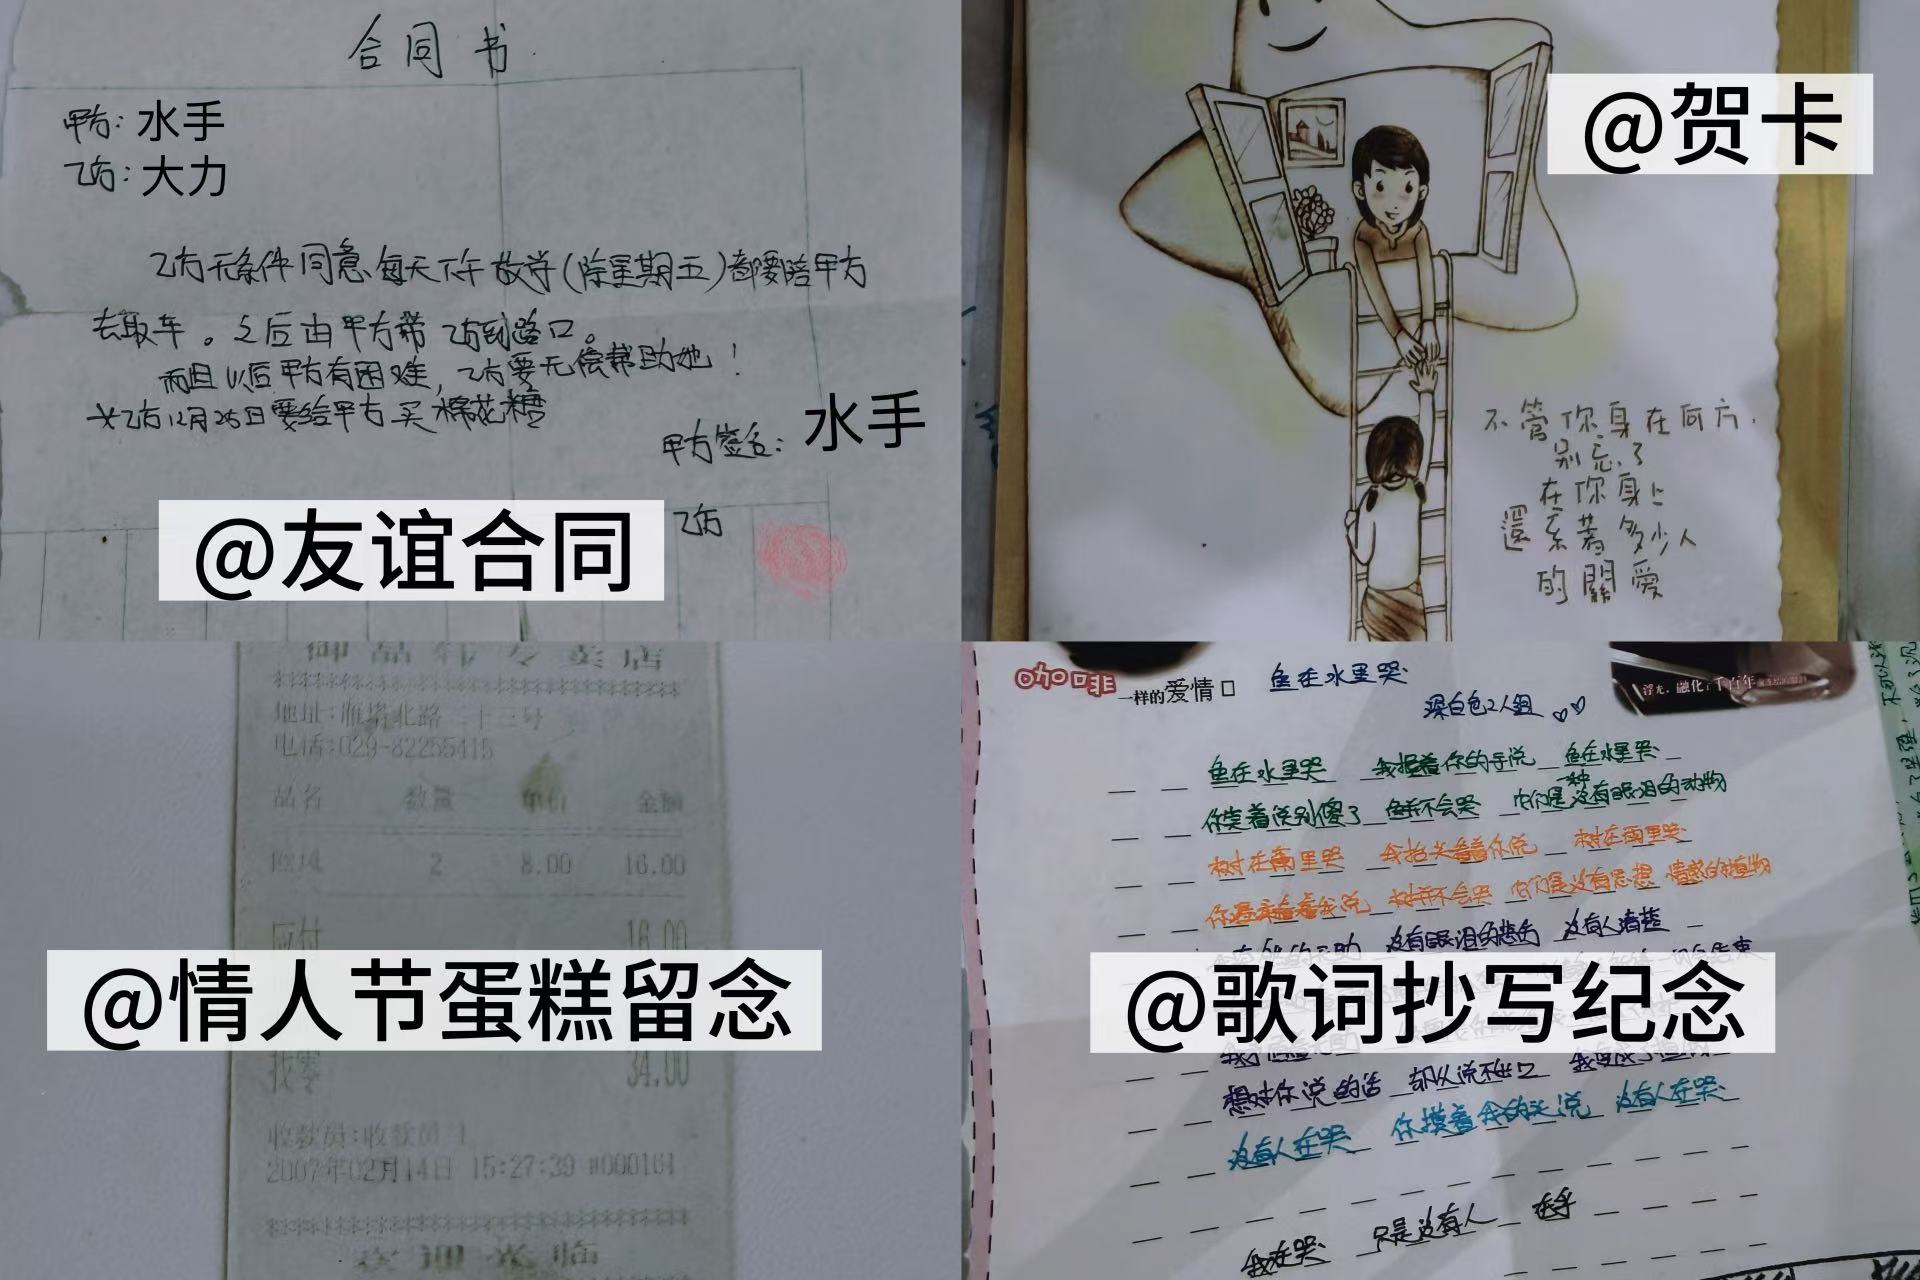 合同书
甲方：水手
乙方：大力
乙方无条件同意每天下午放学(除星期五)都要陪甲方
去取车。之后由甲方带乙方到路口。
而且以后甲方有困难，乙方要无偿帮助她！
乙方12月25日要给甲方买棉花糖
甲方签名：水手
乙方
@友谊合同
@贺卡
不管你身在何方，
别忘了
在你身上
還系著多少人
的關愛
专卖店
地址:雁塔北路二十三号
电话:029-82255415
品名 数量 单价 金额
2 8.00 16.00
应付 16.00
@情人节蛋糕留念
找零 34.00
收款员:收款员 1
2007年02月14日 15:27:39 #000161
欢迎光临
咖啡
一样的爱情
鱼在水里哭
深白色2人组
浮光，融化了千百年
鱼在水里哭 我握着你的手说 鱼在水里哭
你笑着说别傻了 鱼并不会哭 它们是一种没有眼泪的动物
树在雨里哭 我抬头看着你说 树在雨里哭
你温柔看着我说 树并不会哭 它们是没有思想 情感的植物
没有眼泪的悲伤 没有人清楚
@歌词抄写纪念
想对你说的话 却从说不出口 我变成了植物
没有人在哭 你摸着我的头说 没有人在哭
我在哭 只是没有人 在乎